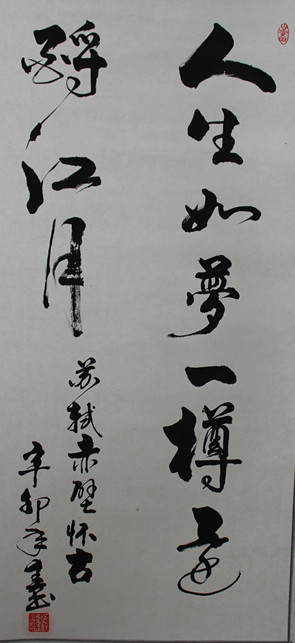 人生如夢一樽還
酹江月
苏轼赤壁怀古
辛卯年书